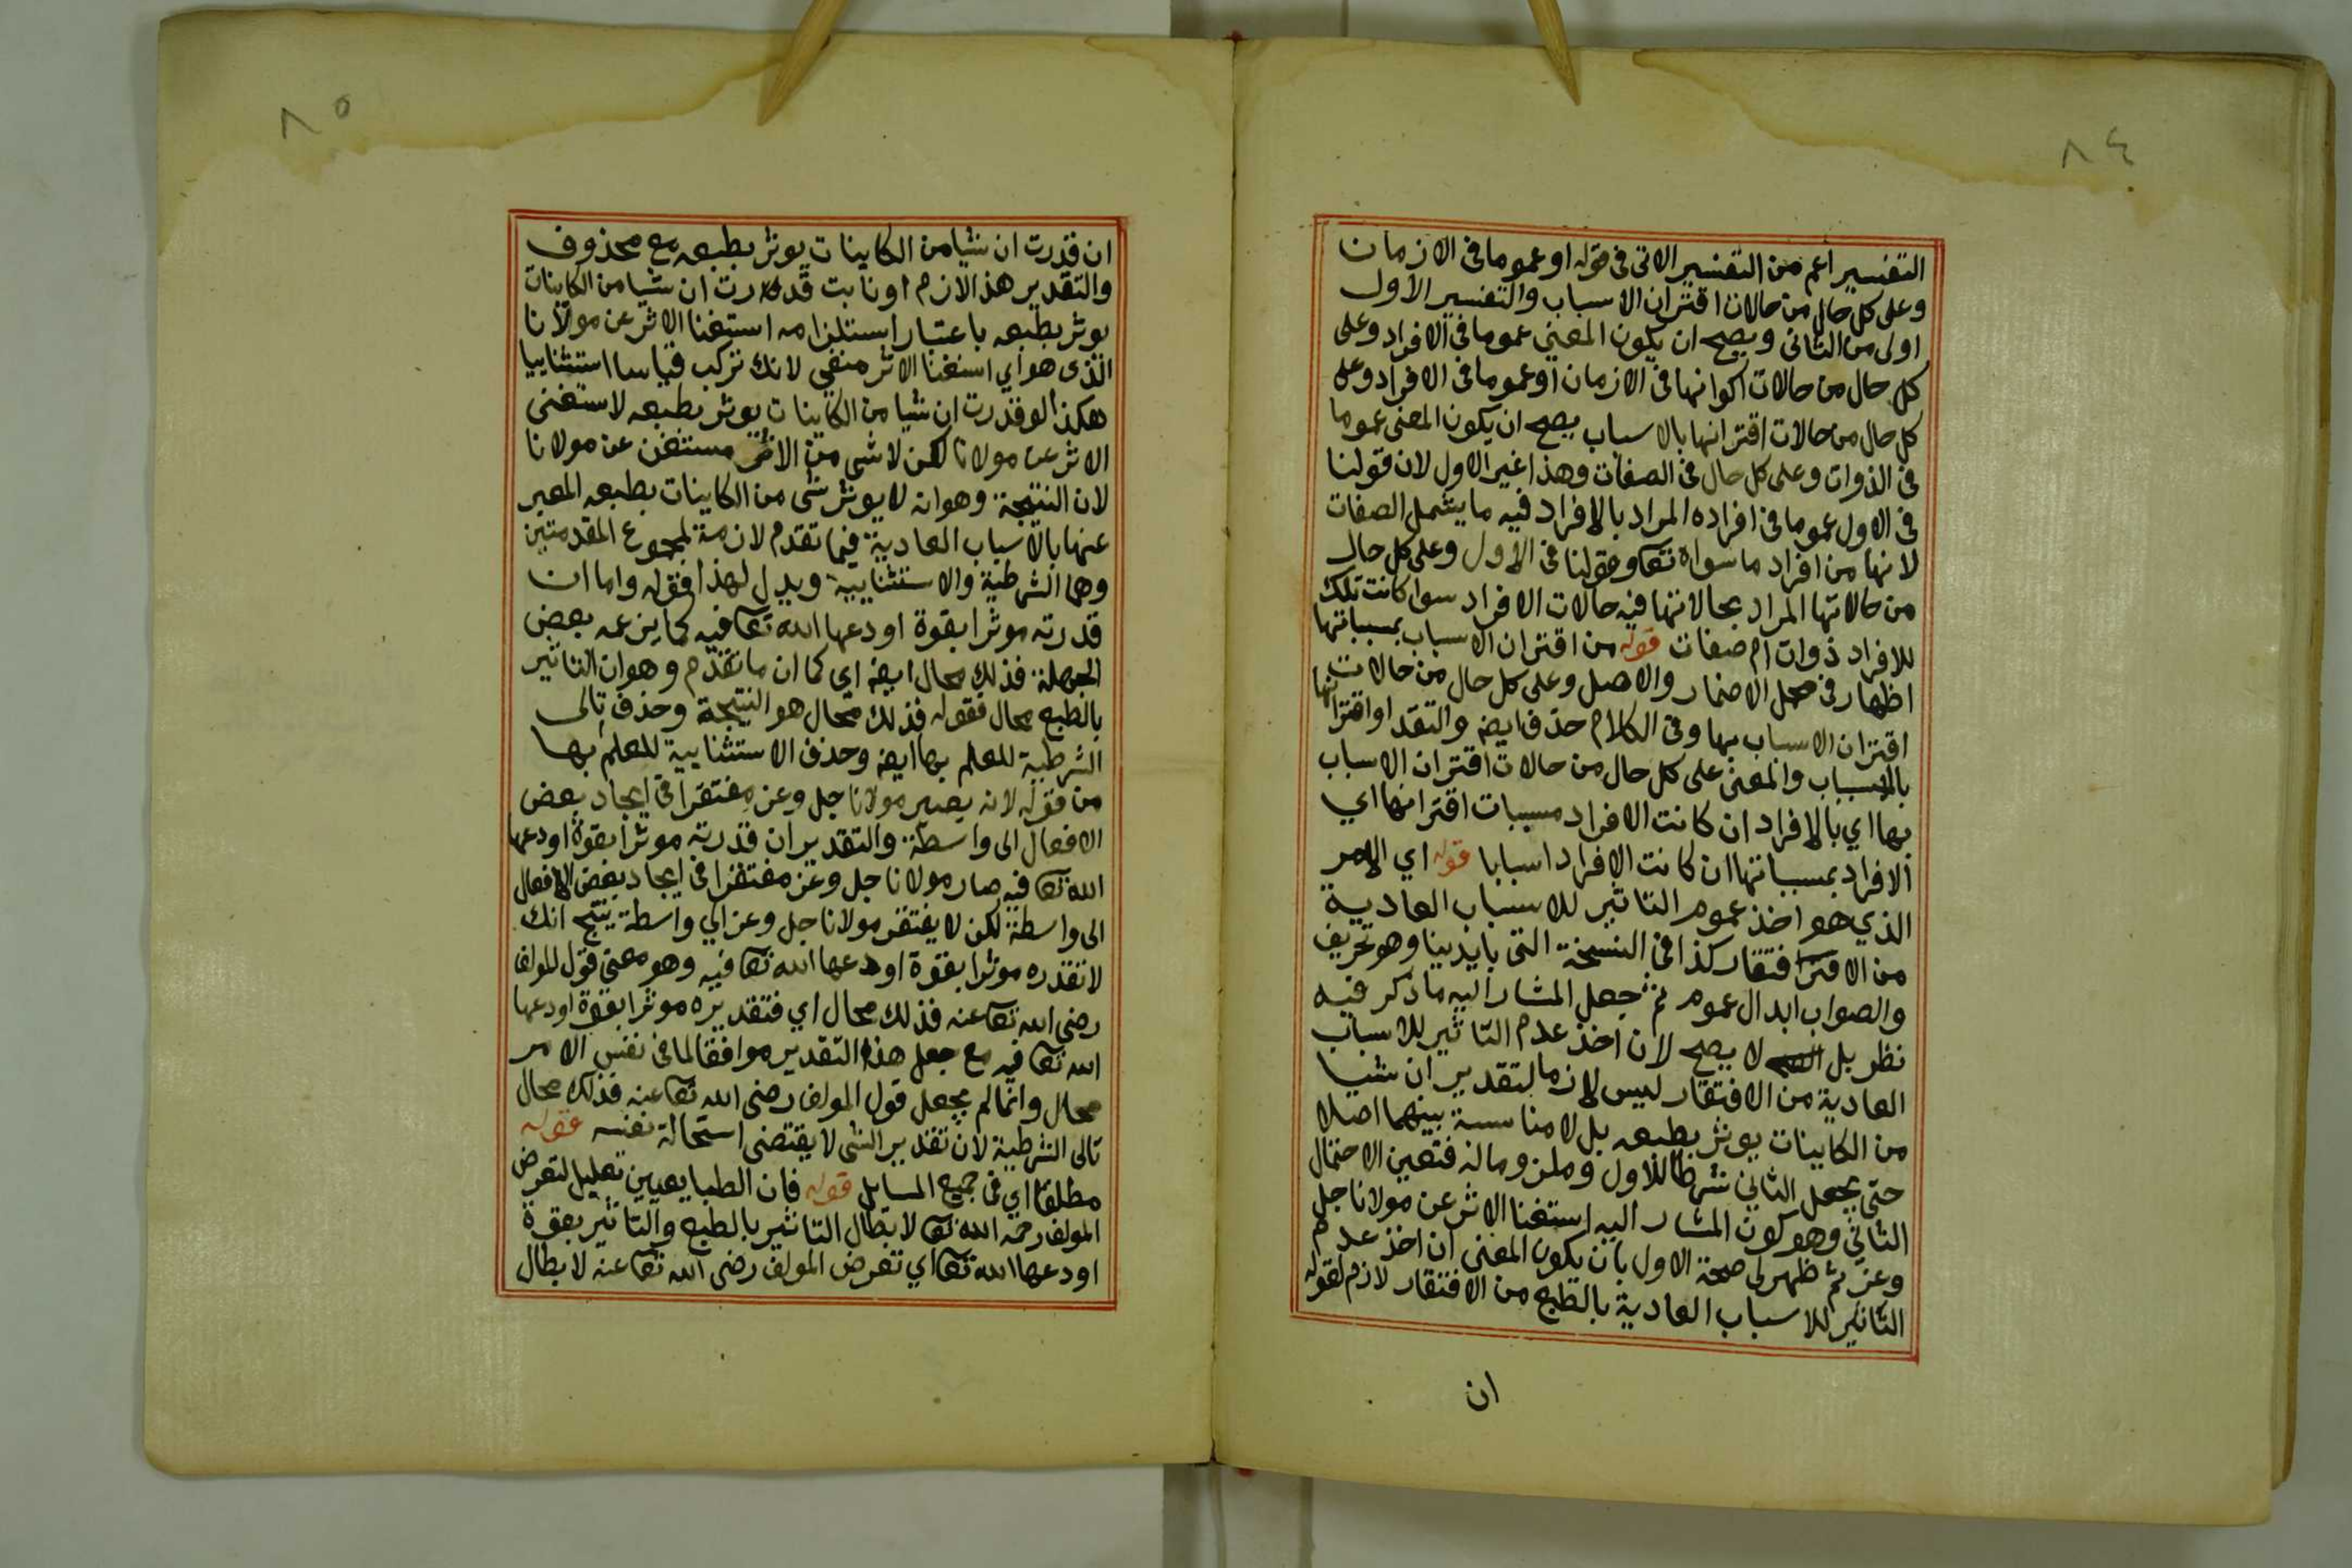 ٨٤
التفسير اعم من التفسير الاتى فى قوله او عموما فى الازمان
وعلى كل حال من حالات اقتران الاسباب والتفسير الاول
اولى من الثانى ويصح ان يكون المعنى عموما فى الافراد وعلى
كل حال من حالات اكوانها فى الازمان او عموما فى الافراد وعلى
كل حال من حالات اقترانها بالاسباب يصح ان يكون المعنى عموما
فى الذوات وعلى كل حال فى الصفات وهذا غير الاول لان قولنا
فى الاول عموما فى افراده المراد بالافراد فيه ما يشمل الصفات
لانها من افراد ما سواه تعا وقولنا فى الاول وعلى كل حال
من حالاتها المراد بحالاتها فيه حالات الافراد سوا كانت تلك
للافراد ذوات ام صفات قوله من اقتران الاسباب بمسبباتها
اظهار فى محل الاضمار والاصل وعلى كل حال من حالات
اقتران الاسباب بها وفى الكلام حذف ايضه والتقد او اقترانها
بالاسباب والمعنى على كل حال من حالات اقتران الاسباب
بها اي بالافراد ان كانت الافراد مسببات اقترانها اي
الافراد بمسبباتها ان كانت الافراد اسبابا قوله اي الامر
الذي هو اخذ عموم التاثير للاسباب العادية
من الافتقار كذا فى النسخة التى بايدينا وهو تحريف
والصواب ابدال عموم ثم جعل المشار اليه ما ذكر فيه
نظر بل لا يصح لان اخذ عدم التاثير للاسباب
العادية من الافتقار ليس لازما لتقدير ان شيا
من الكاينات يوثر بطبعه بل لا مناسبة بينهما اصلا
حتى يجعل الثاني شرطا للاول وملزوما له فتعين الاحتمال
الثاني وهو كون المشار اليه استغنا الاثر عن مولانا جل
وعز ثم ظهر لى صحة الاول بان يكون المعنى ان اخذ عدم
التاثير للاسباب العادية بالطبع من الافتقار لازم لقوله
ان
٨٥
ان قدرت ان شيا من الكاينات يوثر بطبعه مع محذوف
والتقدير هذا لازم او نابت قدرت ان شيا من الكاينات
يوثر بطبعه باعتبار استلزامه استغنا الاثر عن مولانا
الذى هو اي استغنا الاثر منفي لانك تركب قياسا استثناييا
هكذا لو قدرت ان شيا من الكاينات يوثر بطبعه لاستغنى
الاثر عن مولانا لكن لا شى من الاثر مستغن عن مولانا
لان النتيجة وهو انه لا يوثر شى من الكاينات بطبعه المعبر
عنها بالاسباب العادية فيما تقدم لازمة لمجموع المقدمتين
وهما الشرطية والاستثنايية ويدل لهذا قوله واما ان
قدرته موثرا بقوة اودعها الله تعا فيه كما يزعمه بعض
الجهلة فذلك محال ايضه اي كما ان ما تقدم وهو ان التاثير
بالطبع محال فقوله فذلك محال هو النتيجة وحذف تالى
الشرطية للعلم بها ايضه وحذف الاستثنايية للعلم بها
من قوله لانه يصير مولانا جل وعز مفتقرا فى ايجاد بعض
الافعال الى واسطة والتقدير ان قدرته موثرا بقوة اودعها
الله تعا فيه صار مولانا جل وعز مفتقرا فى ايجاد بعض الافعال
الى واسطة لكن لا يفتقر مولانا جل وعز الي واسطة ينتج انك
لا تقدره موثرا بقوة اودعها الله تعا فيه وهو معنى قول المولف
رضى الله تعا عنه فذلك محال اي فتقديره موثرا بقوة اودعها
الله تعا فيه مع جعل هذا التقدير موافقا لما فى نفس الامر
محال وانما لم يجعل قول المولف رضى الله تعا عنه فذلك محال
تالى الشرطية لان تقدير الشى لا يقتضى استحالة نفسه قوله
مطلقا اي فى جميع المسايل قوله فان الطبايعيين تعليل لتعرض
المولف رحمه الله تعا لابطال التاثير بالطبع والتاثير بقوة
اودعها الله تعا اي تعرض المولف رضى الله تعا عنه لابطال